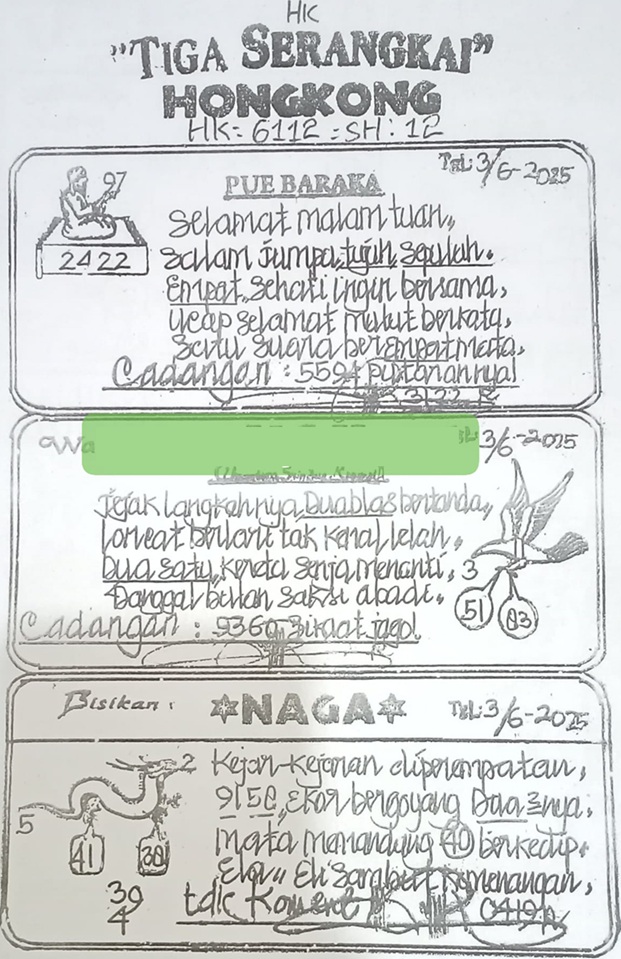 HK
"TIGA SERANGKAI"
HONGKONG
HK= 6112 = SH: 12
TGL: 3/6-2025
97
PUE BARAKA
2422
Selamat malam tuan,,
Salam jumpa, tujuh, sepuluh.
Empat, sehati ingin bersama,
Ucap selamat mulut berkata,
Satu suara berempat mata,
Cadangan : 5594 putarannya!
Wa
3/6-2025
Jejak langkahnya Duablas bertanda,,
Loncat berlari tak kenal lelah,
Dua satu,, kereta senja menanti,
3
51
03
Tanggal bulan saksi abadi.
Cadangan : 9360 sikaat jago!
Bisikan :
NAGA
TGL: 3/6-2025
2
5
41
30
39
4
Kejar-kejaran diperempatan,
9150,, Ekor bergoyang Dua 3nya.
Mata memandang 40 berkedip.
Kemenangan,